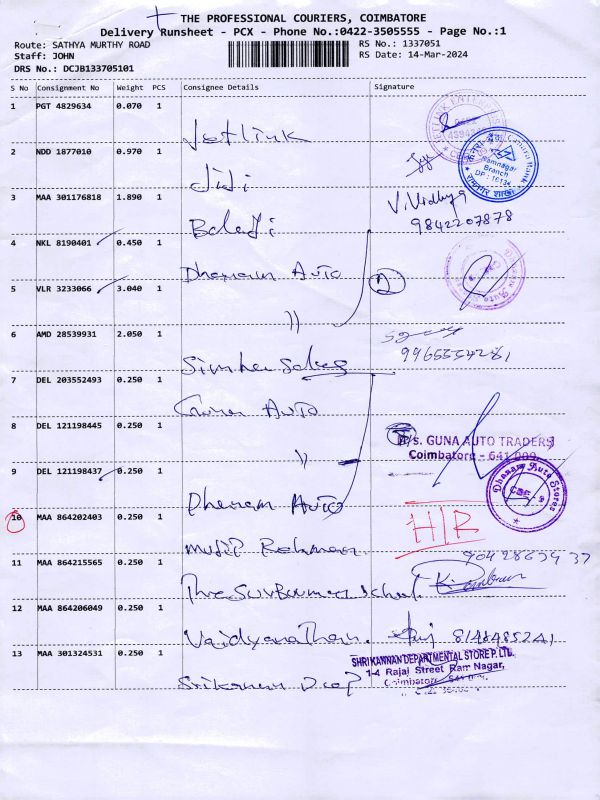 THE PROFESSIONAL COURIERS, COIMBATORE
Delivery Runsheet - PCX - Phone No.:0422-3505555 - Page No.:1
Route: SATHYA MURTHY ROAD
RS No.: 1337051
Staff: JOHN
RS Date: 14-Mar-2024
DRS No.: DCJB133705101
S No Consignment No Weight PCS Consignee Details Signature
1 PGT 4829634 0.070 1
Jetlink
2 NDD 1877010 0.970 1
JiJi
Canara Bank
Ramnagar
Branch
3 MAA 301176818 1.890 1
V. Vidhya
9842207878
Balaji
4 NKL 8190401 0.450 1
Dhanam Auto
5 VLR 3233066 3.040 1
〃
6 AMD 28539931 2.050 1
9965554281
Simha Sales
7 DEL 203552493 0.250 1
Guna Auto
8 DEL 121198445 0.250 1
M/s. GUNA AUTO TRADERS
Coimbatore - 641 009.
〃
9 DEL 121198437 0.250 1
Dhanam Auto Stores
CBE - 9
Dhanam Auto
10 MAA 864202403 0.250 1
H/R
11 MAA 864215565 0.250 1
12 MAA 864206049 0.250 1
Vaidyanathan. 8148485241
13 MAA 301324531 0.250 1
SHRI KANNAN DEPARTMENTAL STORE P. LTD.
1-4 Rajaji Street Ram Nagar,
Coimbatore